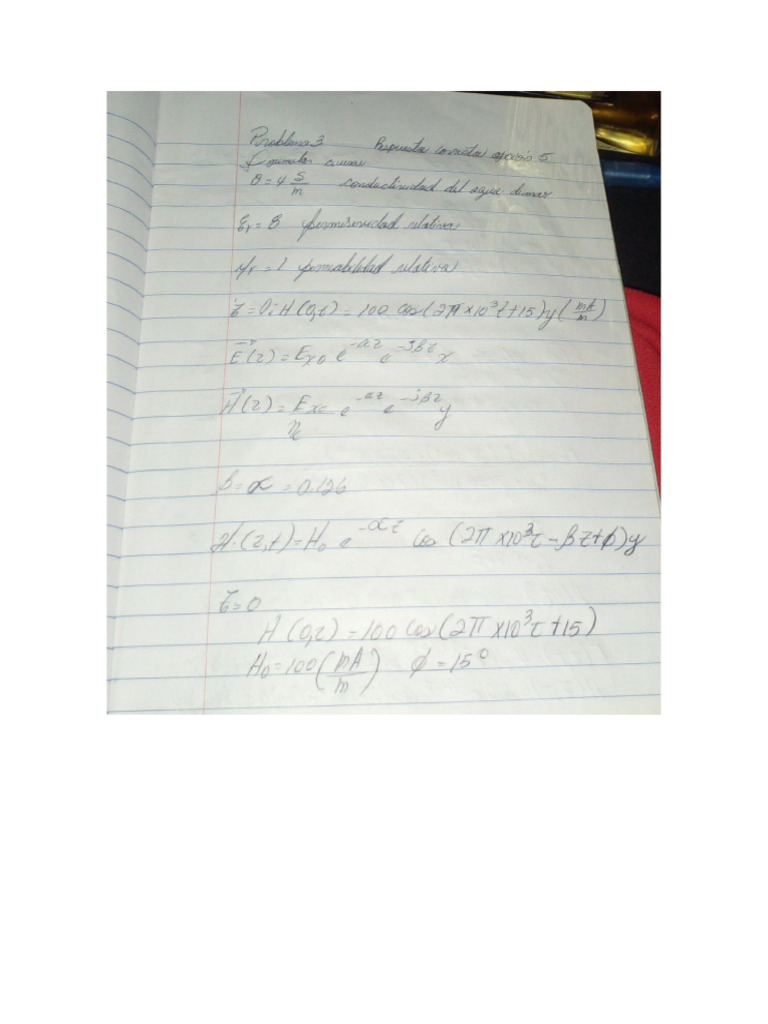 Problema 3 Respuesta correcta opción 5
σ = 4 S/m conductividad del agua de mar
εr = 8 permisividad relativa
μr = 1 permiabilidad relativa
z = 0; H(0,t) = 100 cos(2π×10³t+15)y(mA/m)
E(z) = Ex0 e^-αz e^-jβz x
H(z) = Ex0/ηc e^-αz e^-jβz y
β = α = 0.126
H(z,t) = H0 e^-αz cos(2π×10³t-βz+ϕ)y
z = 0
H(0,t) = 100 cos(2π×10³t+15)
H0 = 100(mA/m) ϕ = 15°